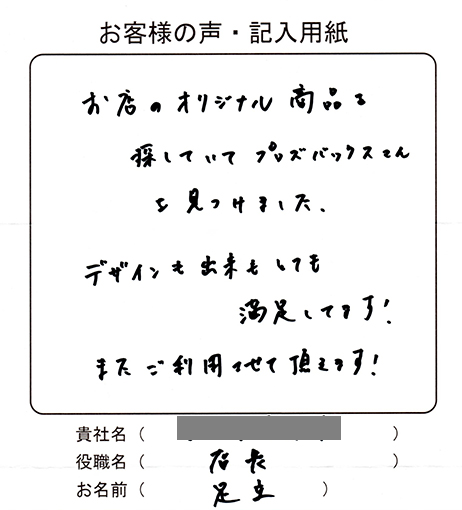 お客様の声・記入用紙
お店のオリジナル商品を
探していて プロズバックスさん
を見つけました。
デザインも出来もとても
満足してます!
またご利用させて頂きます!
貴社名（　　　　）
役職名（　店長　）
お名前（　足立　）